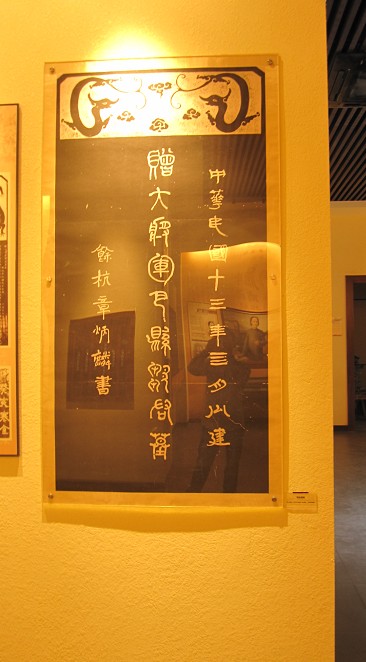 中華民國十三年三月建
贈大將軍巴縣鄒容墓
餘杭章炳麟書